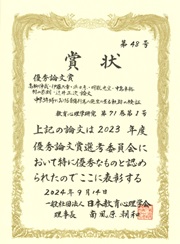 第48号
賞状
優秀論文賞
教育心理学研究 第71巻第1号
上記の論文は2023年度
優秀論文賞選考委員会に
おいて特に優秀なものと認め
られたのでここに表彰する
2024年9月14日
一般社団法人 日本教育心理学会
理事長 南風原朝和